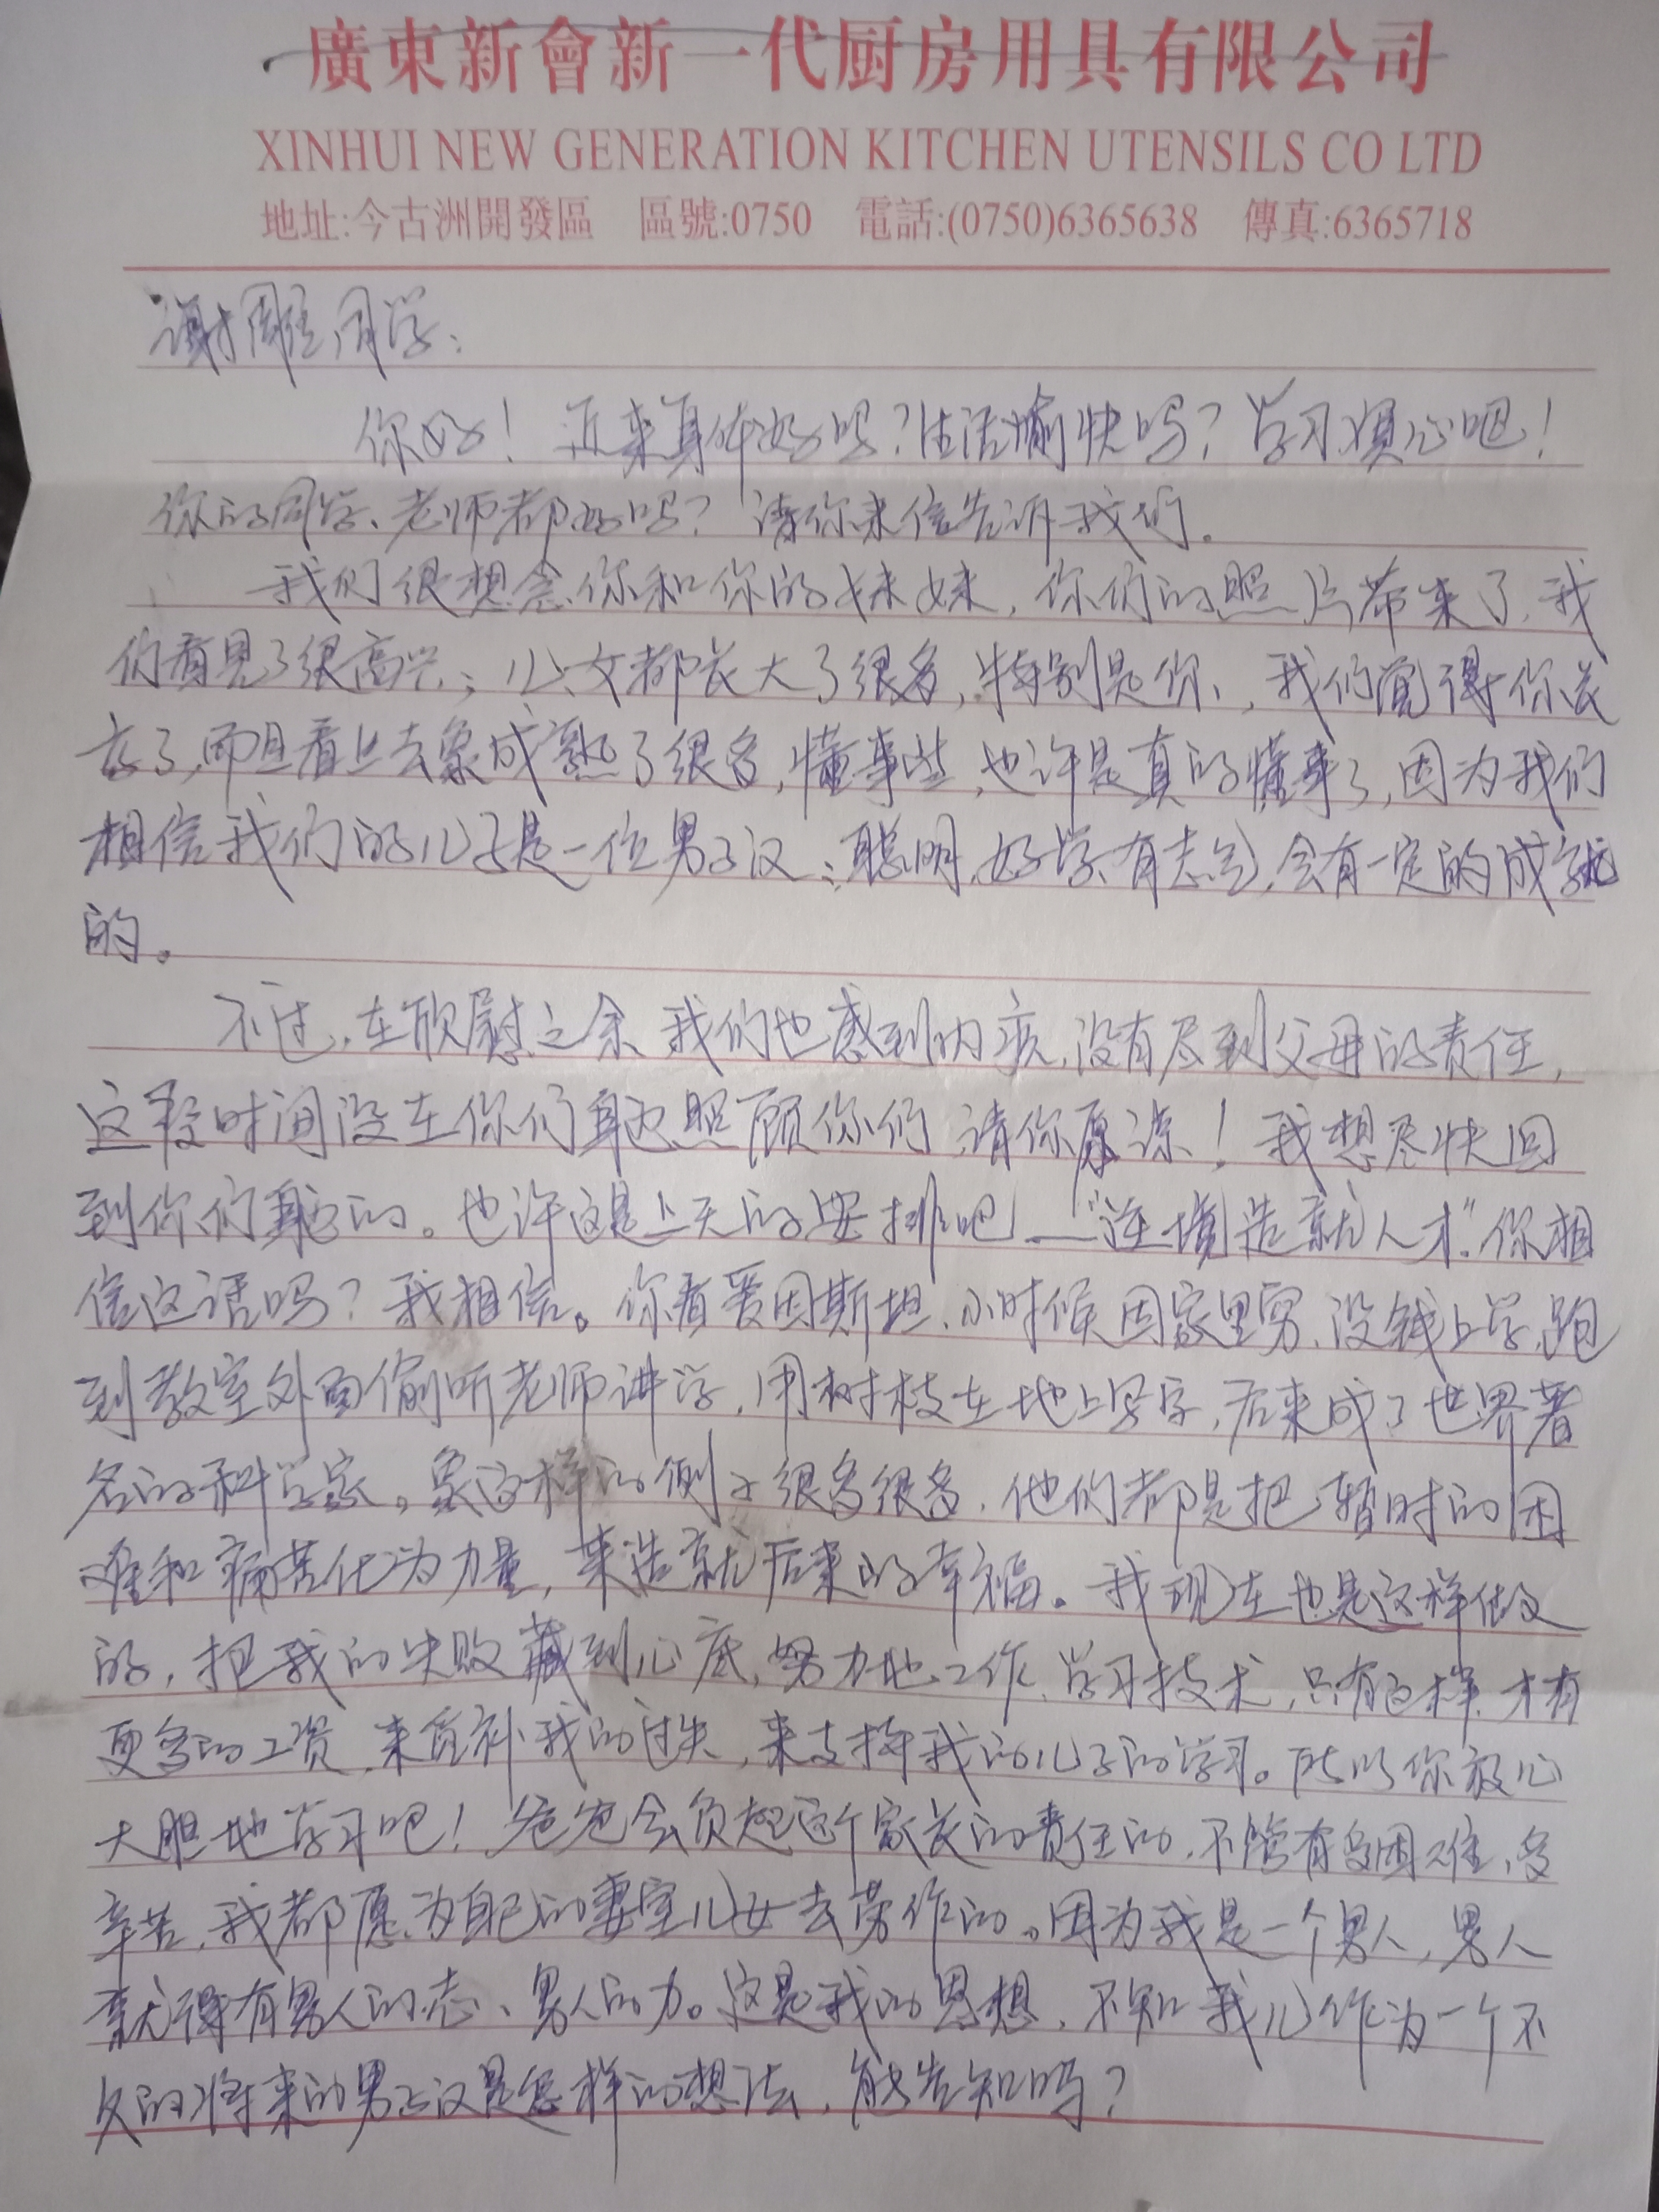 廣東新會新一代厨房用具有限公司
XINHUI NEW GENERATION KITCHEN UTENSILS CO LTD
地址:今古洲開發區 區號:0750 電話:(0750)6365638 傳真:6365718
谢雕同学：
你好！近来身体好吗？生活愉快吗？学习顺心吧！
你的同学、老师都好吗？请你来信告诉我们。
我们很想念你和你的妹妹，你们的照片带来了，我
们看见了很高兴；儿、女都长大了很多，特别是你，我们觉得你长
高了，而且看上去象成熟了很多，懂事些，也许是真的懂事了，因为我们
相信我们的儿子是一位男子汉：聪明、好学、有志气，会有一定的成就
的。
不过，在欣慰之余，我们也感到内疚，没有尽到父母的责任，
这段时间没在你们身边照顾你们，请你原谅！我想尽快回
到你们身边的。也许这是上天的安排吧——“逆境造就人才”。你相
信这话吗？我相信。你看爱因斯坦，小时候因家里穷，没钱上学，跑
到教室外面偷听老师讲学，用树枝在地上写字，后来成了世界著
名的科学家。象这样的例子很多很多，他们都是把暂时的困
难和痛苦化为力量，来造就后来的幸福。我现在也是这样做
的，把我的失败藏到心底，努力地工作、学习技术，只有这样，才有
更多的工资，来填补我的过失，来支持我的儿子的学习。所以你放心
大胆地学习吧！爸爸会负起这个家长的责任的，不管有多困难，多
辛苦，我都愿为自己的妻室儿女去劳作的。因为我是一个男人，男人
就得有男人的志、男人的力。这是我的思想，不知我儿作为一个不
久的将来的男子汉是怎样的想法，能告知吗？